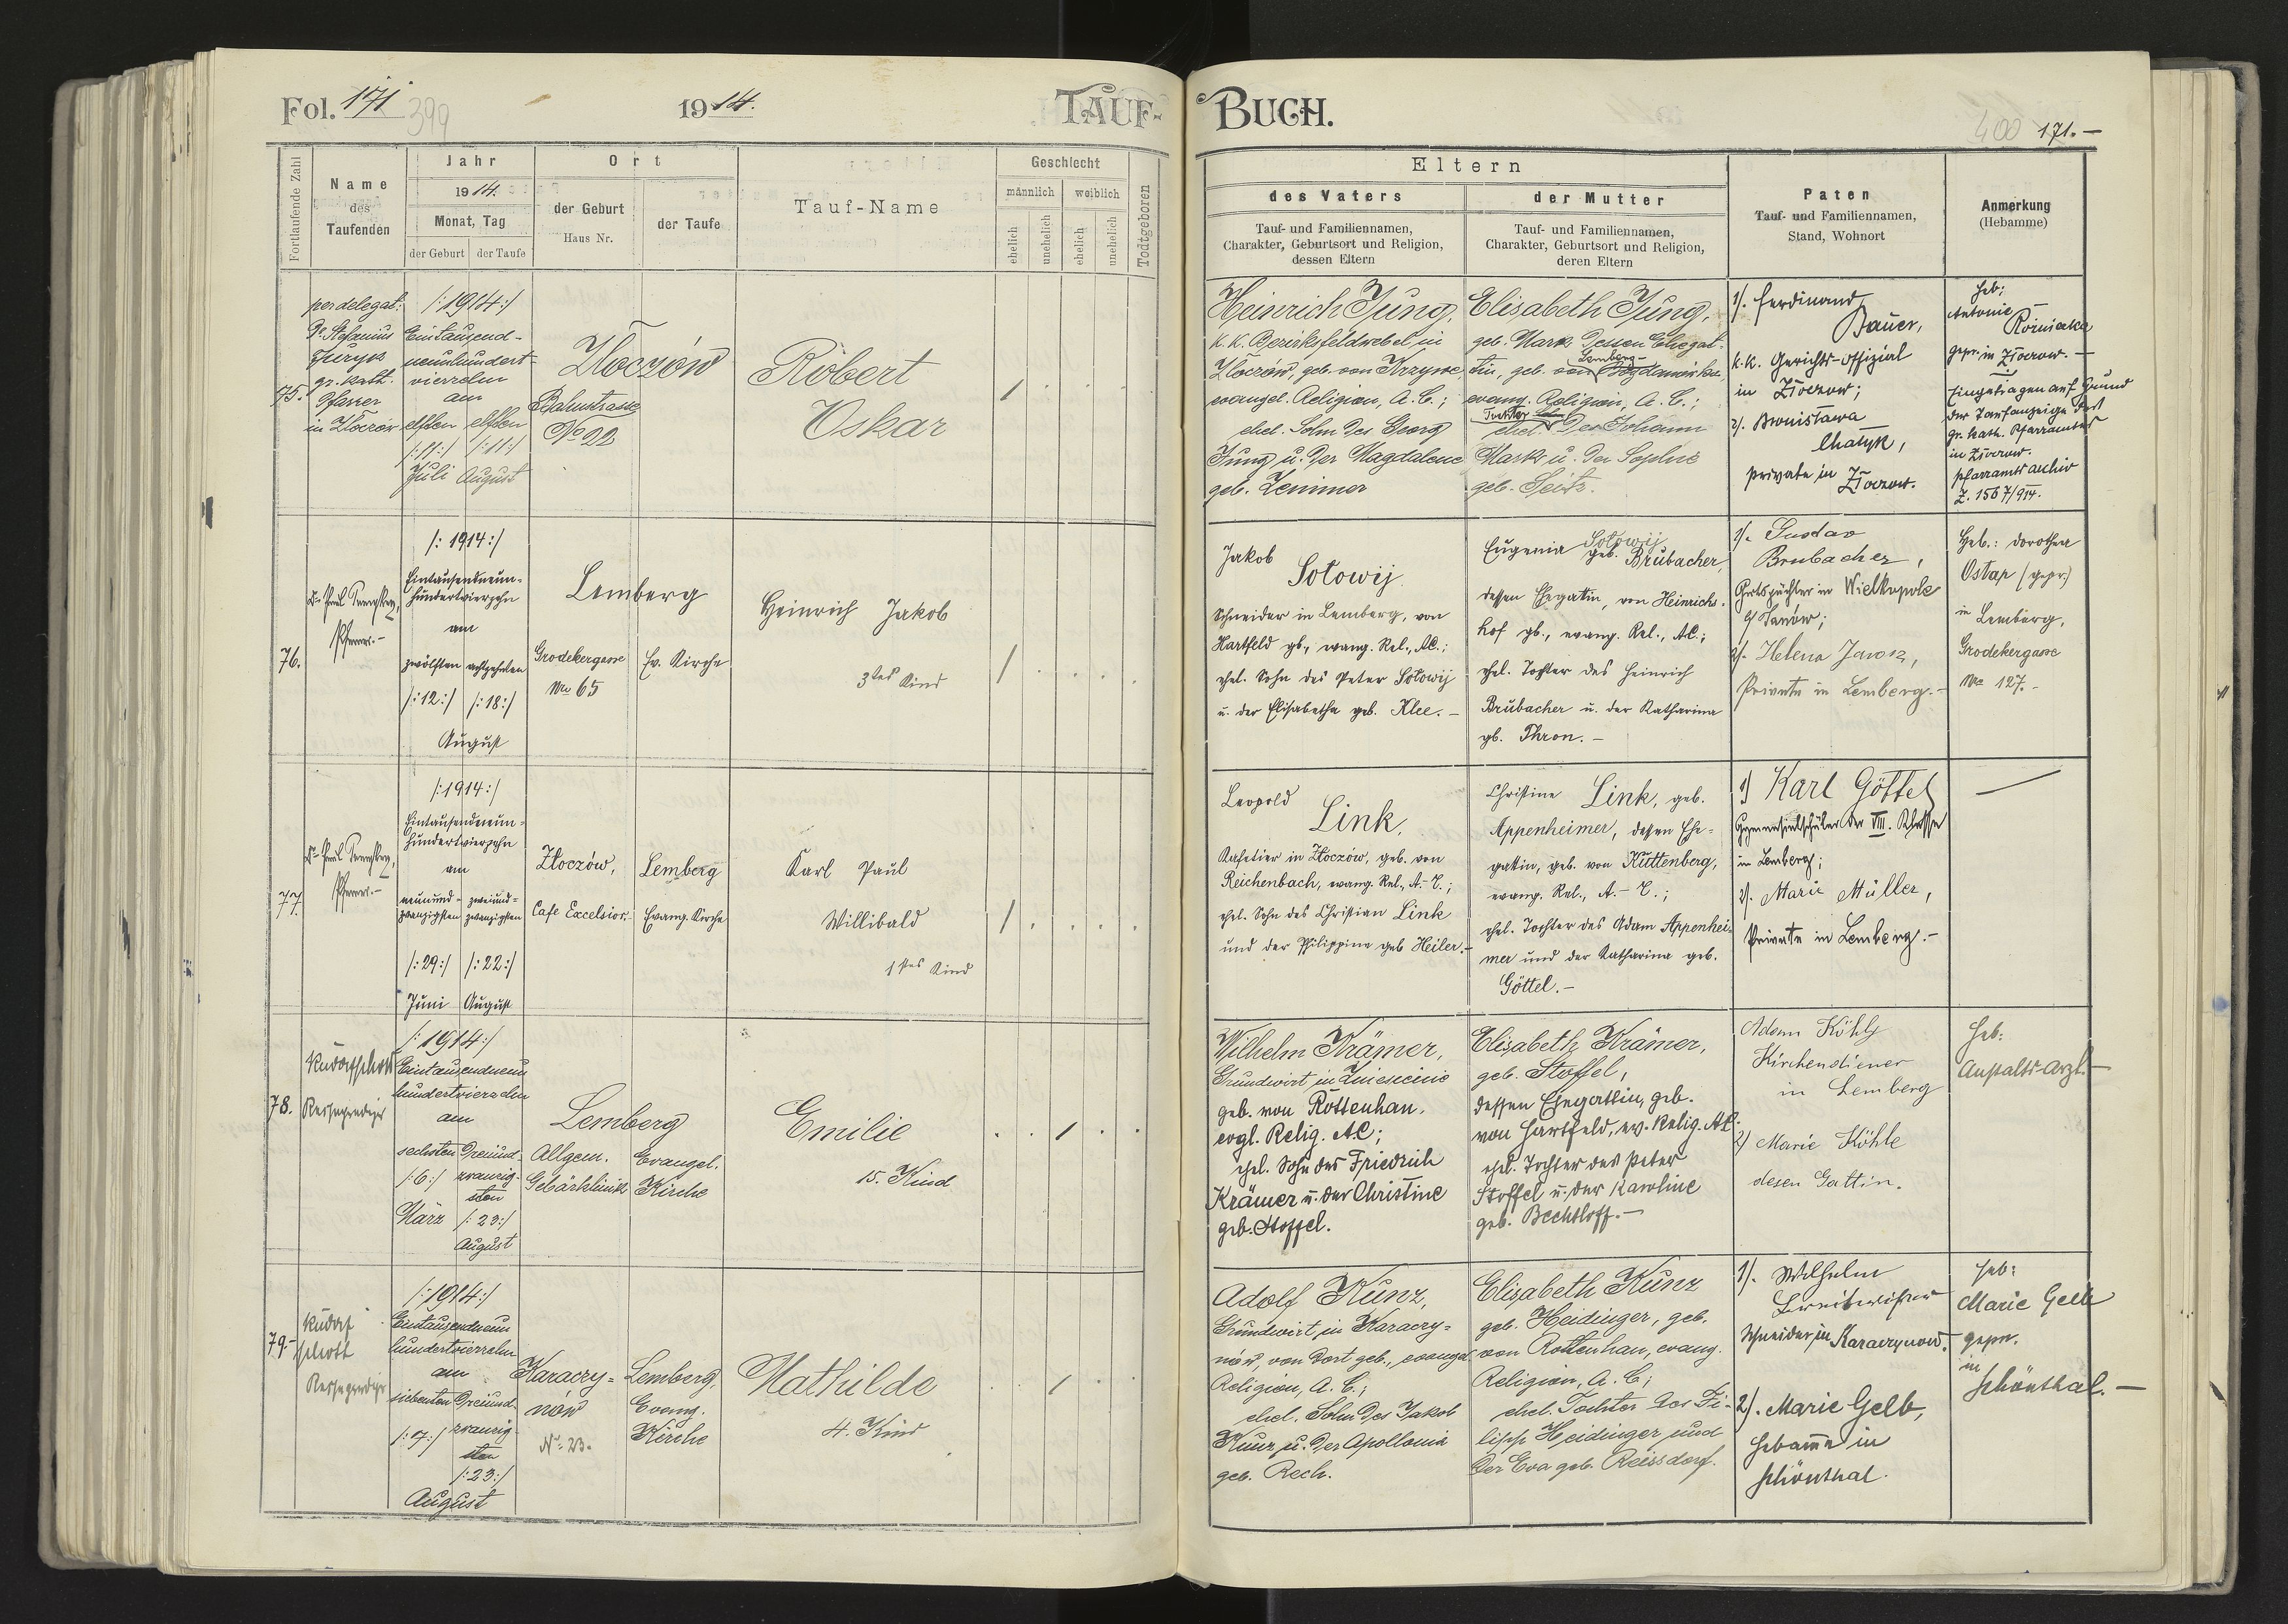 Fol. 171 399
1914.
TAUF-
BUCH.
400 171.—
Fortlaufende Zahl
Name
des
Taufenden
Jahr
1914.
Monat, Tag
der Geburt
der Taufe
Ort
der Geburt
Haus Nr.
der Taufe
Tauf-Name
Geschlecht
männlich
weiblich
ehelich
unehelich
ehelich
unehelich
Todtgeboren
Eltern
des Vaters
Tauf- und Familiennamen,
Charakter, Geburtsort und Religion,
dessen Eltern
der Mutter
Tauf- und Familiennamen,
Charakter, Geburtsort und Religion,
deren Eltern
Paten
Tauf- und Familiennamen,
Stand, Wohnort
Anmerkung
(Hebamme)
75.
per delegat:
Dr. Stefanius
Juryk
gr. kath.
Pfarrer
in Złoczów
/:1914:/
Eintausend-
neunhundert-
vierzehn
am
elften elften
/:11:/ /:11:/
Juli August
Złoczów
Bahnstrasse
No 22
Robert
Oskar
Heinrich Jung,
k. k. Bezirksfeldwebel in
Złoczów, geb. von Krzywe,
evangel. Religion, A. C.;
ehel. Sohn des Georg
Jung u. der Magdalene
geb. Zemmer
Elisabeth Jung,
geb. Mark dessen Ehegat-
Lemberg-
tin, geb. von
evang. Religion, A. C.;
Tochter
ehel. des Johann
Mark u. der Sophie
geb. Seitz.
1/. Ferdinand
Bauer,
k.k. Gerichts-Offizial
in Złoczow;
2/. Bronisława
Chatyk,
Private in Złoczow.
Heb:
Antonie
Rozniecka
gepr. in Złoczow.—
Eingetragen auf Grund
der Taufanzeige des
gr. kath. Pfarramtes
in Złoczow.
Pfarramtsarchiv
Z. 1567/914.
76.
Dr. Paul
Pfarrer.-
/:1914:/
Eintausendneun-
hundertvierzehn
am
zwölften achtzehnten
/:12:/ /:18:/
August
Lemberg
Grodekergasse
Nro 65
Ev. Kirche
Heinrich Jakob
3tes Kind
Jakob
Sołowij
Schneider in Lemberg, von
Hartfeld gb., evang. Rel., AC.;
ehel. Sohn des Peter Sołowij
u. der Elisabetha geb. Klee.—
Eugenia Sołowij
geb. Brubacher,
dessen Ehegatin, von Heinrichs-
hof gb., evang. Rel., AC.;
ehel. Tochter des Heinrich
Brubacher u. der Katharina
gb. Thron.—
1/. Gustav
Brubacher,
Gutspächter in Wielkopole
q/ Janów;
2/. Helena Jarosz,
Private in Lemberg.-
Heb.: Dorothea
Ostap (gepr.)
in Lemberg,
Grodekergasse
Nro 127.-
77.
Dr. Paul
Pfarrer.-
/:1914:/
Eintausendneun-
hundertvierzehn
am
neunund- zweiund-
zwanzigsten zwanzigsten
/:29:/ /:22:/
Juni August
Złoczów,
Cafe Excelsior.-
Lemberg
Evang. Kirche
Karl Paul
Willibald
1stes Kind
Leopold
Link,
Kafetier in Złoczów, geb. von
Reichenbach, evang. Rel., A.-C.;
ehel. Sohn des Christian Link
und der Philippine geb Heiler.-
Christine Link, geb.
Appenheimer, dessen Ehe-
gattin, geb. von Kuttenberg,
evang. Rel., A.-C.;
ehel. Tochter des Adam Appenhei-
mer und der Katharina geb.
Göttel.—
1) Karl Göttel
Gymnasialschüler der VIII. Klasse
in Lemberg;
2). Marie Müller,
Private in Lemberg.-
78.
Rudolf Schott
Reiseprediger
/:1914:/
Eintausendneun
hundertvierzehn
am
sechsten dreiund-
/:6:/ zwanzig-
sten
März /:23:/
August
Lemberg
Allgem.
Gebärklinik
Evangel.
Kirche
Emilie
15. Kind
Wilhelm Krämer,
Grundwirt in Zniesienie
geb. von Rottenhan.
evgl. Relig. AC;
ehel. Sohn des Friedrich
Krämer u. der Christine
geb. Stoffel.
Elisabeth Krämer,
geb. Stoffel,
dessen Ehegattin, geb.
von Hartfeld, ev. Relig. AC.
ehel. Tochter des Peter
Stoffel u. der Karoline
geb. Bechtloff.—
Adam Köhle
Kirchendiener
in Lemberg
2) Marie Köhle
desen Gattin.
Heb:
Anstalts-Arzt.—
79.-
Rudolf
Schott
Reiseprediger
/:1914:/
Eintausendneun
hundertvierzehn
am
siebenten dreiund-
/:7:/ zwanzig-
sten
/:23:/
August
Karaczy-
nów
No. 23.
Lemberg,
Evang.
Kirche
Mathilde
4. Kind
Adolf Kunz,
Grundwirt in Karaczy-
nów, von dort geb., evangel
Religion, A. C.;
ehel. Sohn des Jakob
Kunz u. der Apollonia
geb. Rech.
Elisabeth Kunz
geb. Heidinger, geb.
von Rottenhan, evang.
Religion, A. C;
ehel. Tochter des Fi-
lipp Heidinger und
der Eva geb. Reissdorf.
1/. Wilhelm
Schneider in Karaczynow.
2/. Marie Gelb,
Hebamme in
Schönthal.
Heb:
Marie Gelb
gepr.
in
Schönthal.—